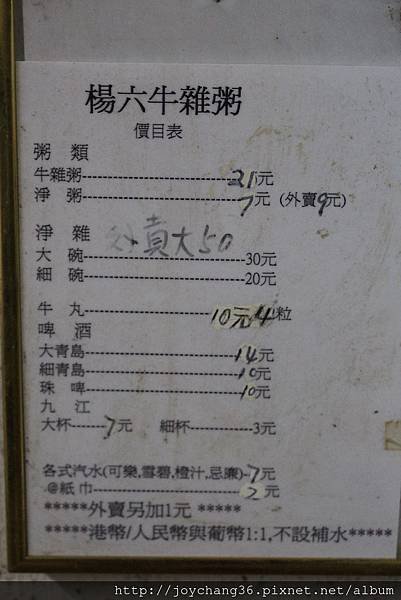 楊六牛雜粥
價目表
粥 類
牛雜粥---------------------------21元
淨 粥---------------------------7元 (外賣9元)
淨 雜 外賣大50
大 碗---------------------------30元
細 碗---------------------------20元
牛 丸---------------------------10元4粒
啤 酒
大青島---------------------------14元
細青島---------------------------10元
珠 啤---------------------------10元
九 江
大杯------7元 細杯------------3元
各式汽水(可樂,雪碧,橙汁,忌廉)-7元
@紙 巾---------------------------2元
*****外賣另加1元 *****
*****港幣/人民幣與葡幣1:1,不設補水*****
http://joychang36.pixnet.net/album